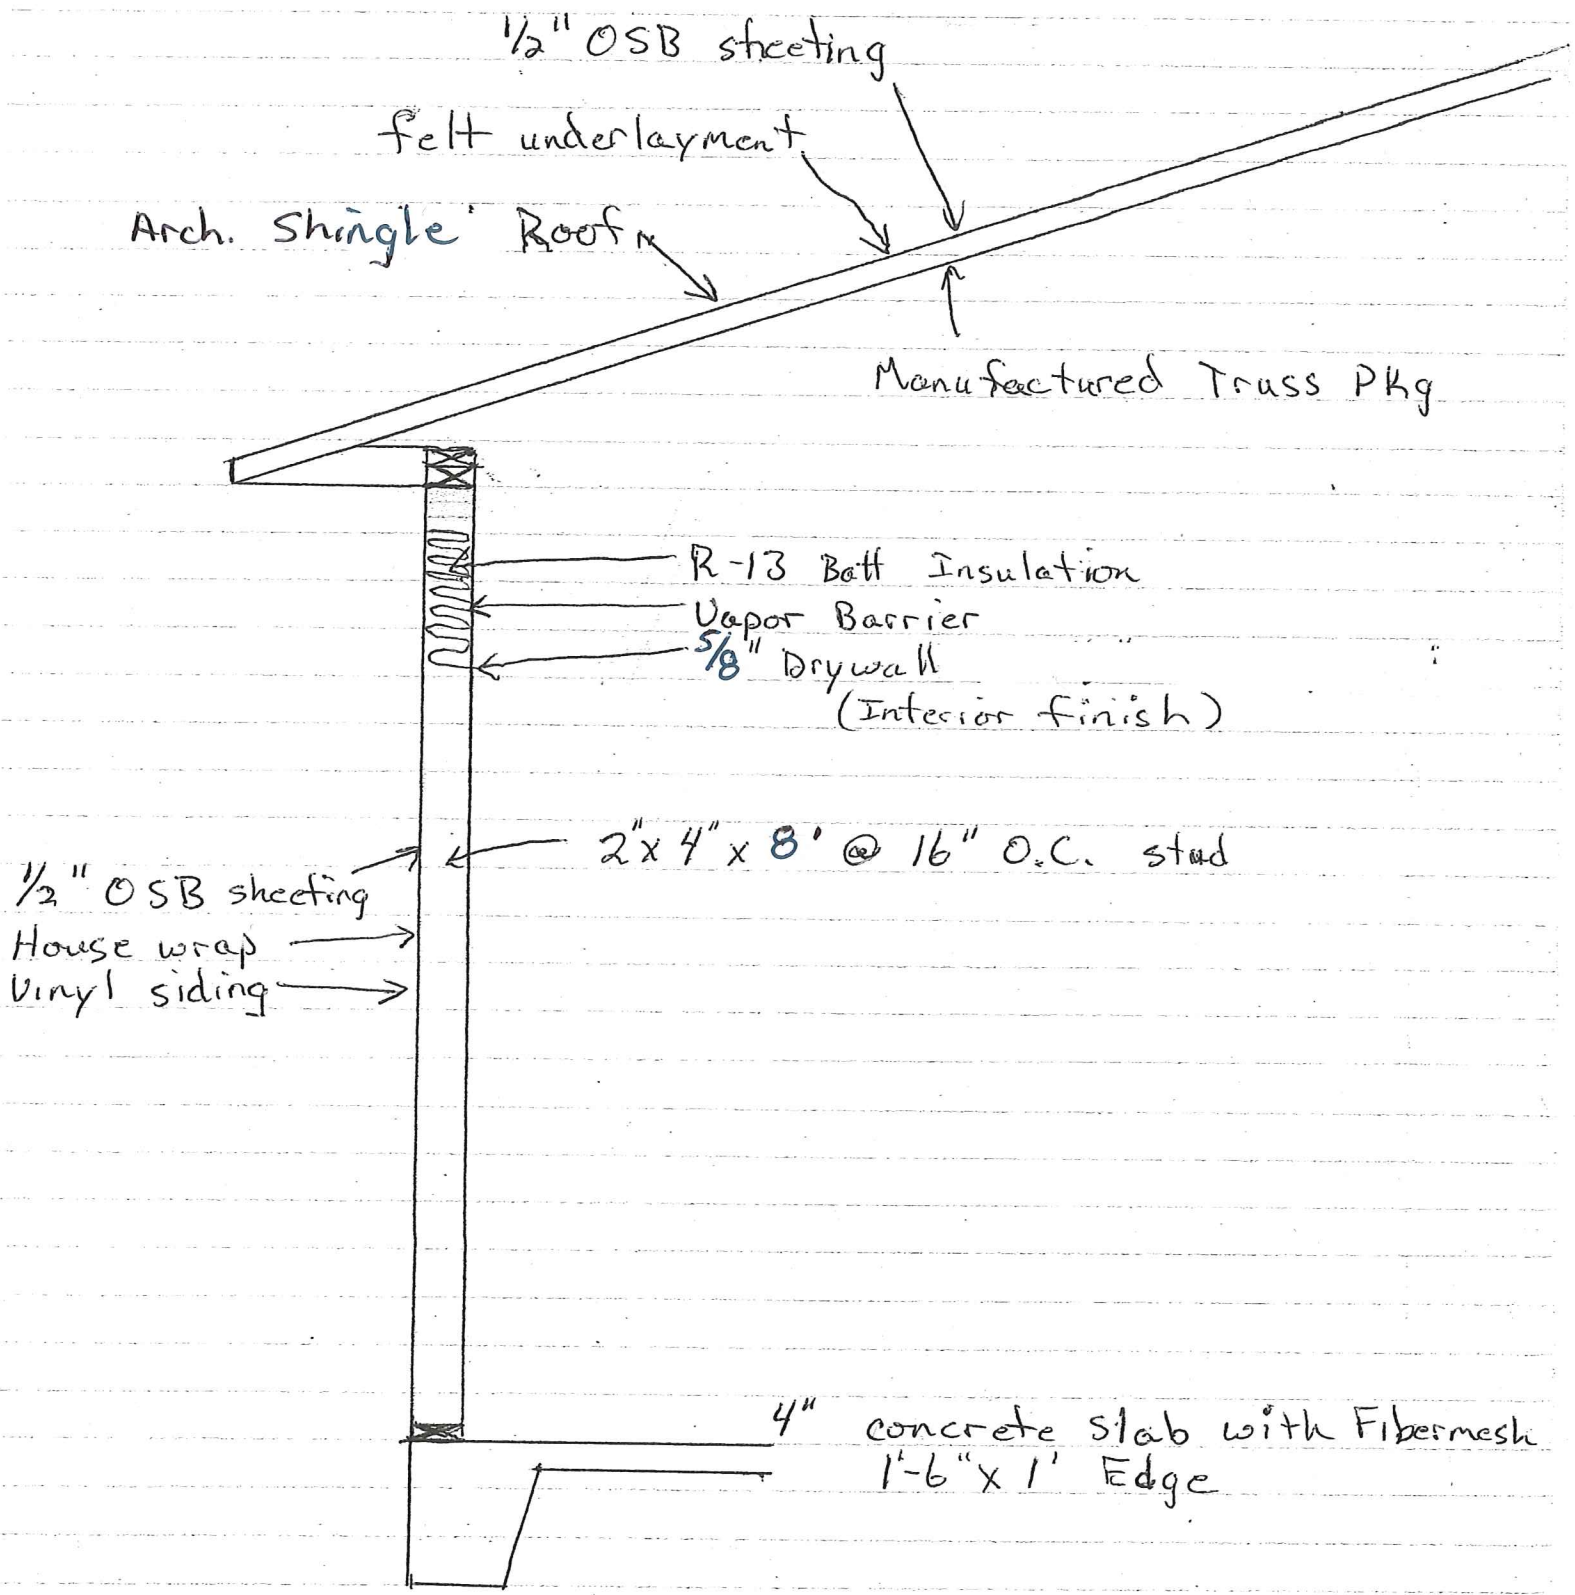 1/2" OSB sheeting
felt underlayment
Arch. Shingle Roof
Manufactured Truss PKg
R-13 Batt Insulation
Vapor Barrier
5/8" Drywall
(Interior finish)
2"x 4"x 8' @ 16" O.C. stud
1/2" OSB sheeting
House wrap
Vinyl siding
4" concrete slab with Fibermesh
1'-6"x 1' Edge